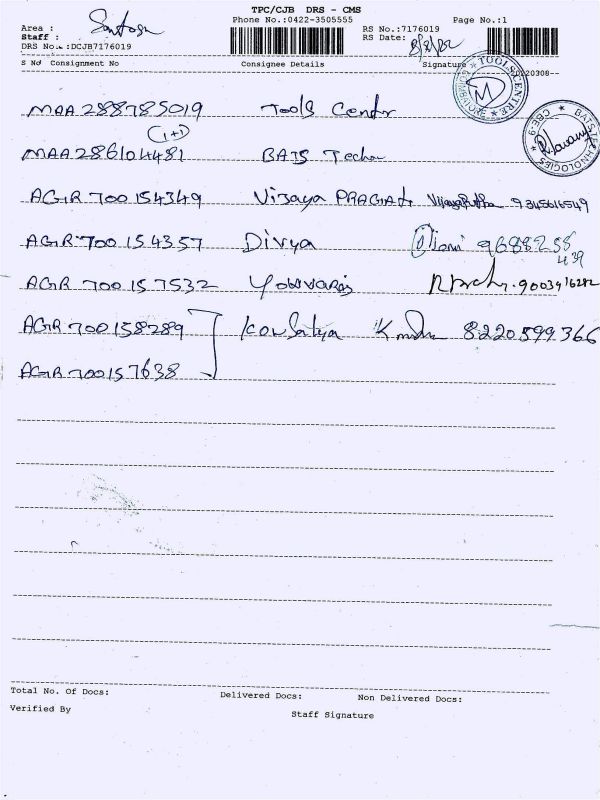 TPC/CJB DRS - CMS
Phone No.:0422-3505555
Area : Santosh
Staff :
DRS No.:DCJB7176019
RS No.:7176019
RS Date: 8/3/22
Page No.:1
S No Consignment No Consignee Details Signature
20220308-
TOOLS CENTRE COIMBATORE
MAA 288785019 Tools Centr
(1+1)
MAA 286104481 BATS Techn
BATS TECHNOLOGIES CBE-9
AGIR 700 154349 Vijaya PRAGIAH 9345616549
AGIR 700 154357 Divya 9688258
439
AGIR 700 157532 Yobuvaraj 9003916282
AGIR 700158289 Kousalya 8220599366
AGIR 700157638
Total No. Of Docs: Delivered Docs: Non Delivered Docs:
Verified By
Staff Signature